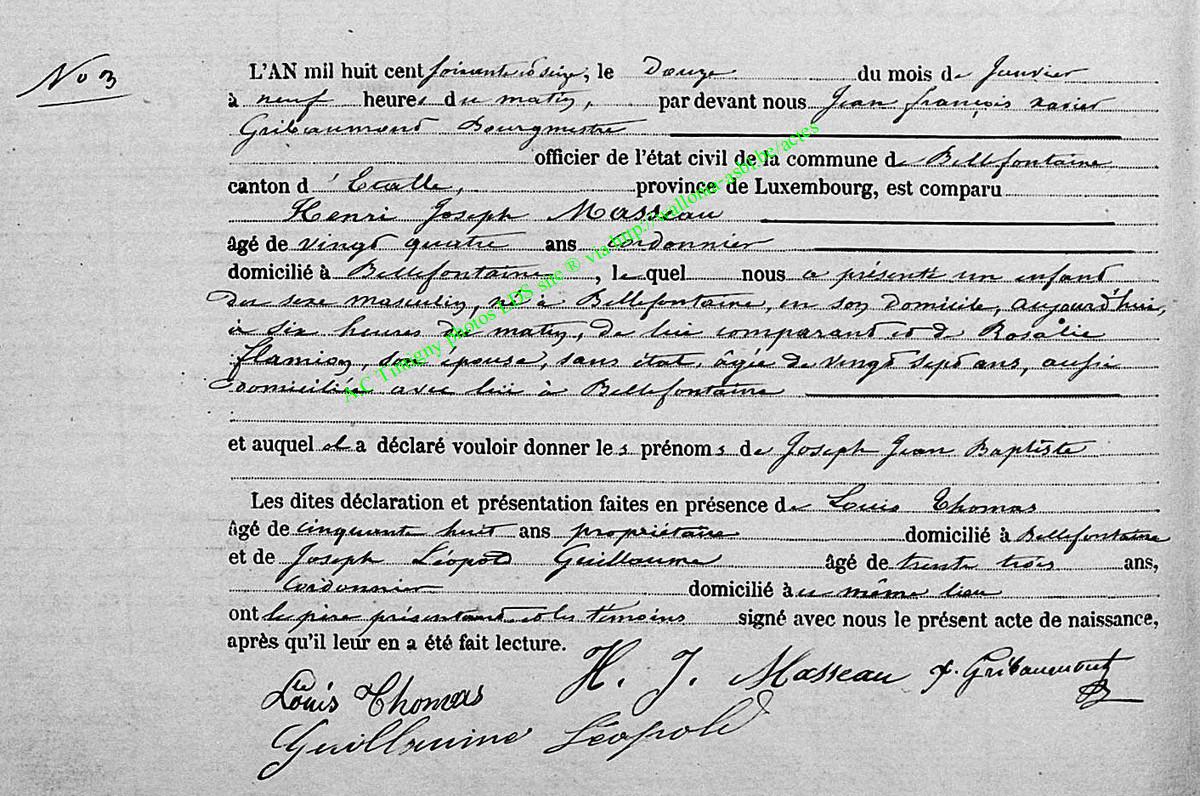 No 3
L'AN mil huit cent soixante et seize, le Douze du mois de Janvier
à neuf heures du matin, par devant nous Jean françois xavier
Gribaumont Bourgmestre
officier de l'état civil de la commune de Bellefontaine
canton d'Etalle, province de Luxembourg, est comparu
Henri Joseph Masseau
âgé de vingt quatre ans cordonnier
domicilié à Bellefontaine, lequel nous a présenté un enfant
du sexe masculin, né à Bellefontaine, en son domicile, aujourd'hui,
à six heures du matin, de lui comparant et de Rosalie
flamion, son épouse, sans état, âgée de vingt sept ans, aussi
domiciliée avec lui à Bellefontaine
et auquel il a déclaré vouloir donner les prénoms de Joseph Jean Baptiste
Les dites déclaration et présentation faites en présence de Louis Thomas
âgé de cinquante huit ans propriétaire domicilié à Bellefontaine
et de Joseph Léopold Guillaume âgé de trente trois ans,
cordonnier domicilié au même lieu
ont le père présentant et les témoins signé avec nous le présent acte de naissance,
après qu'il leur en a été fait lecture.
Louis Thomas H. J. Masseau x. Gribaumont
Guillaume Léopold
A.C Tintigny photos LDS site ® via http://wallonia-asbl.be/actes